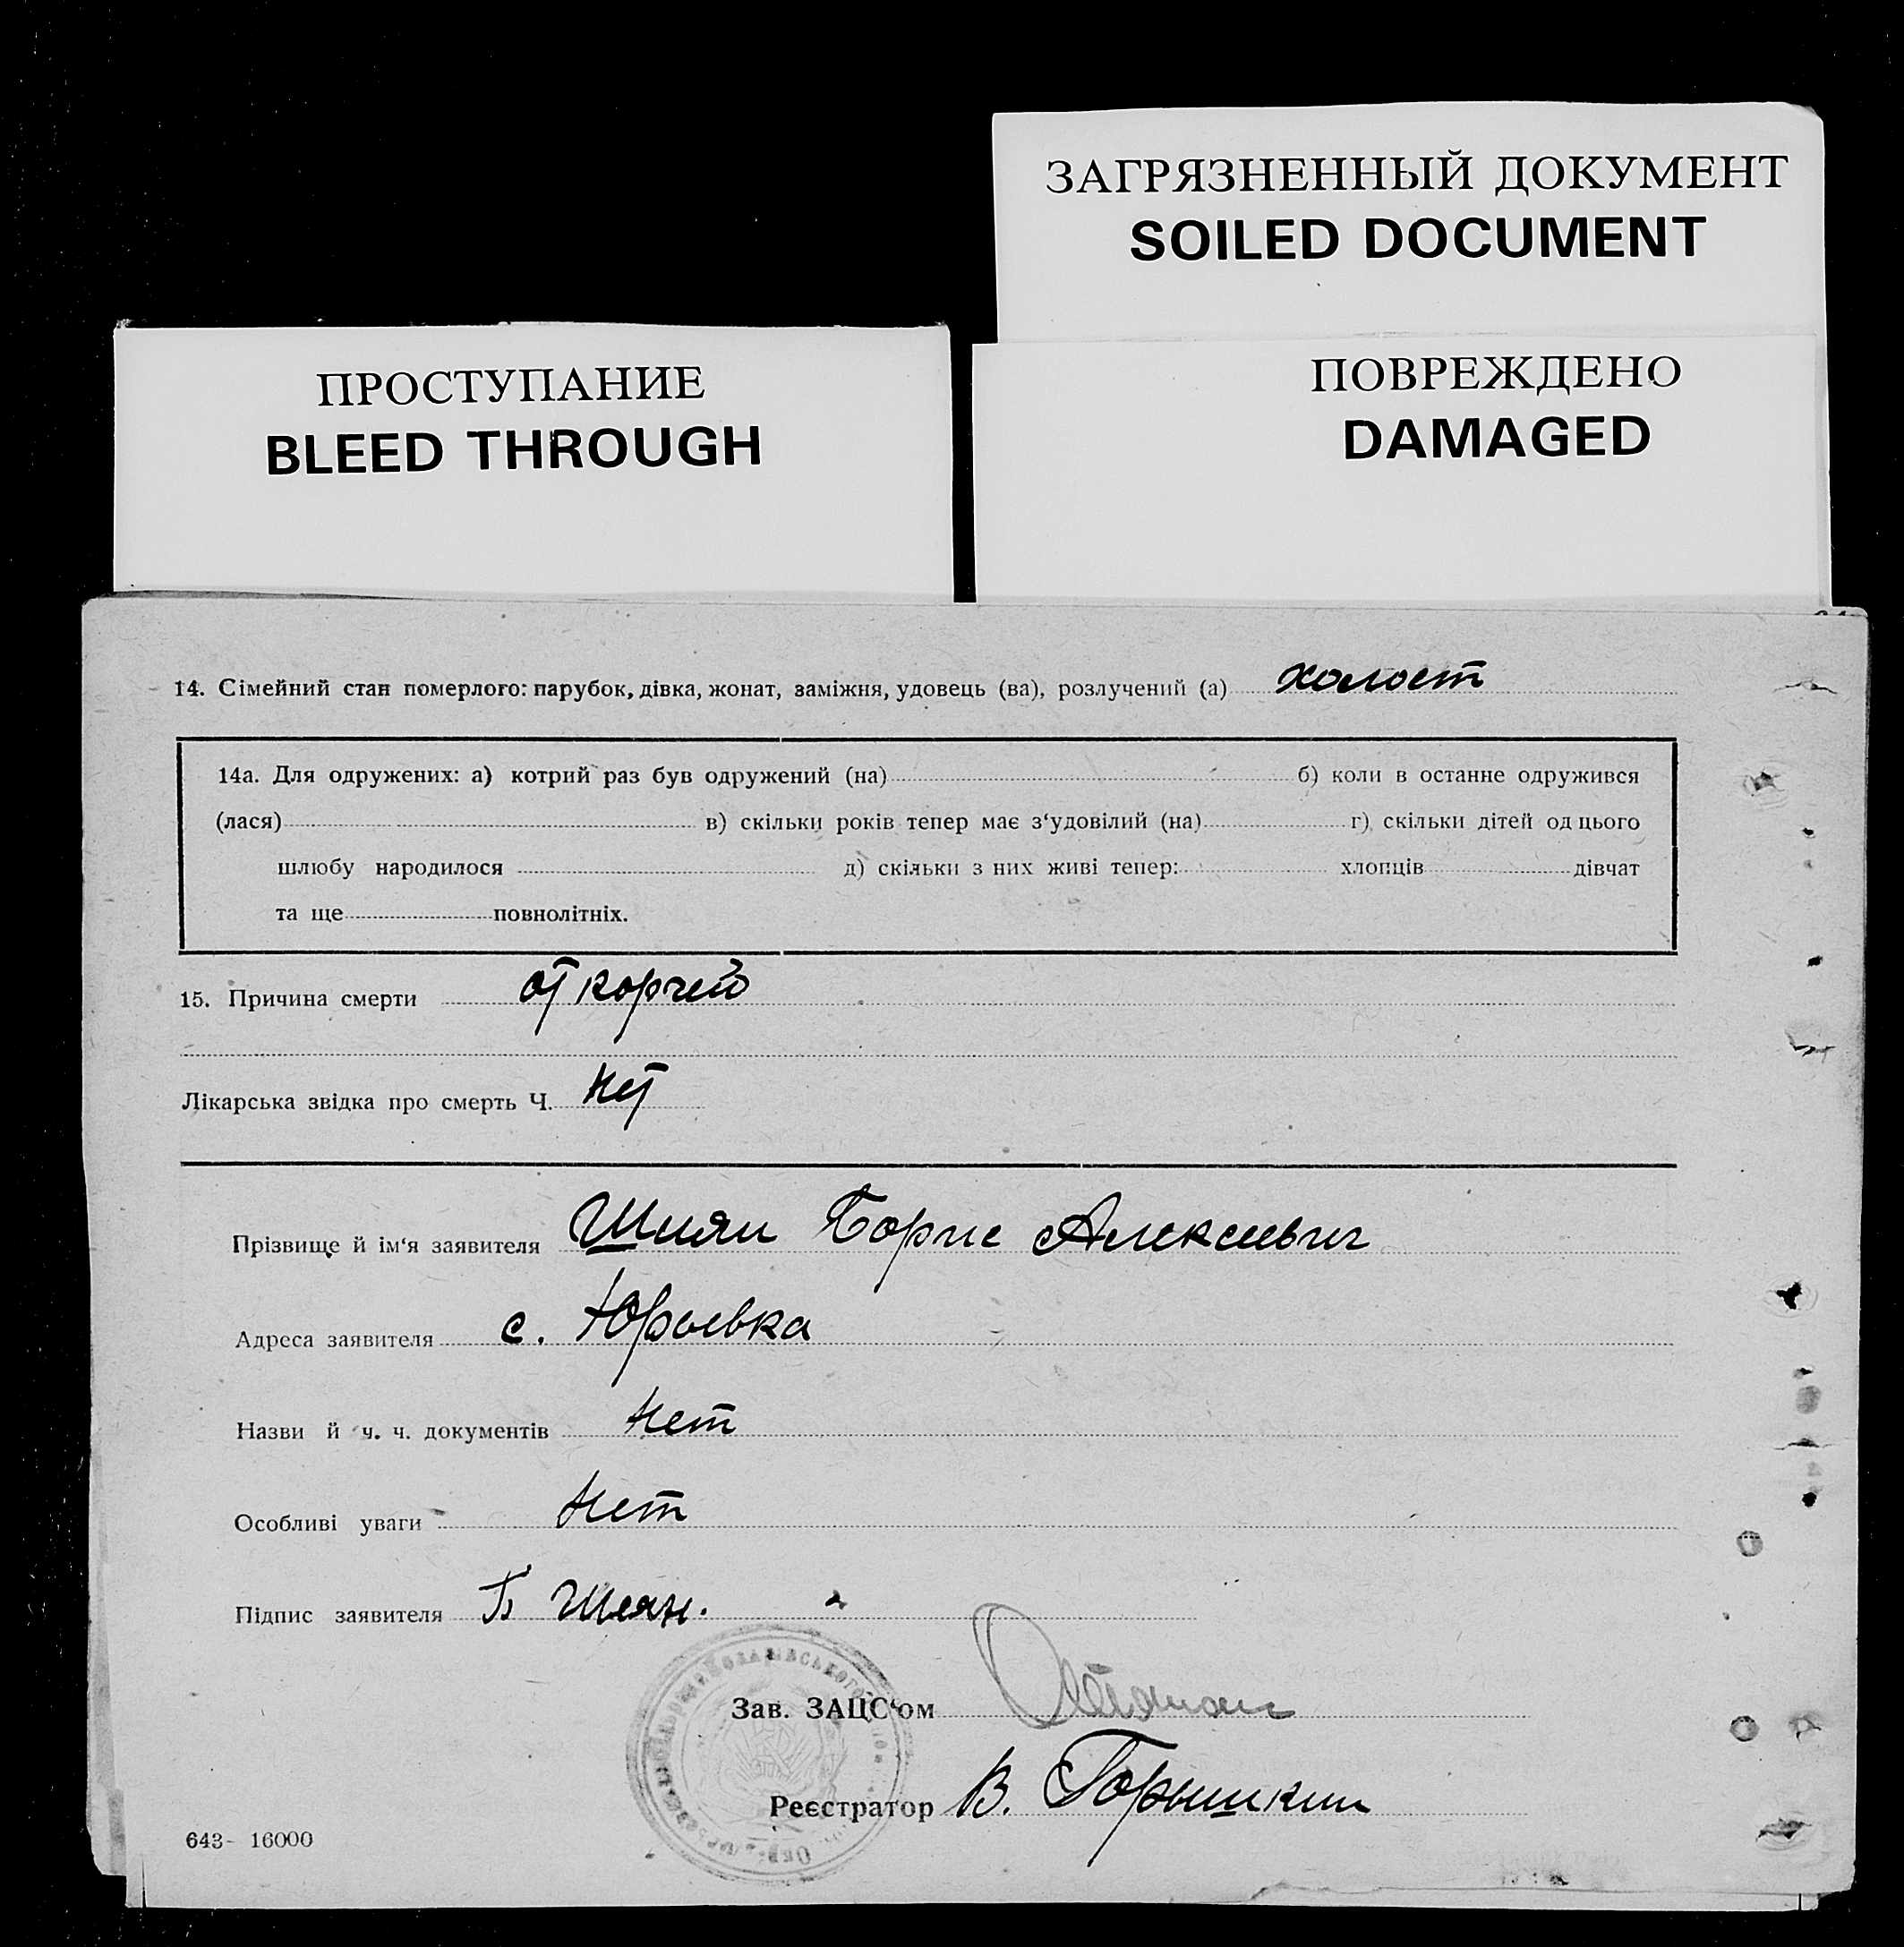 ЗАГРЯЗНЕННЫЙ ДОКУМЕНТ
SOILED DOCUMENT
ПРОСТУПАНИЕ
BLEED THROUGH
ПОВРЕЖДЕНО
DAMAGED
14. Сімейний стан померлого: парубок, дівка, жонат, заміжня, удовець (ва), розлучений (а) холост
14а. Для одружених: а) котрий раз був одружений (на) б) коли в останне одружився
(лася) в) скільки років тепер має з‘удовілий (на) г) скільки дітей од цього
шлюбу народилося д) скільки з них живі тепер: хлопців дівчат
та ще повнолітніх.
15. Причина смерти от корчей
Лікарська звідка про смерть Ч. нет
Прізвище й ім‘я заявителя Шиян Борис Алексиевич
Адреса заявителя с. Юрьевка
Назви й ч. ч. документів нет
Особливі уваги нет
Підпис заявителя Б Шиян.
Зав. ЗАЦС‘ом
Реєстратор В. Горышкин
643- 16000